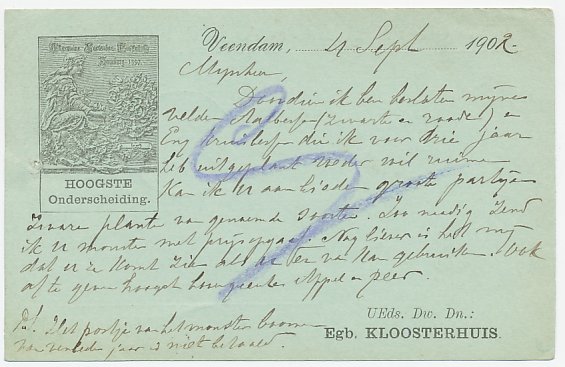 Allgemeine Gartenbau Ausstellung
Hamburg 1897
HOOGSTE
Onderscheiding.
Veendam, 4 Sept 1902.
Mijnheer,
Doordien ik ben besloten mijne
velden Aalbessen (zwarte en roode) en
Eng Kruisbessen die ik voor drie jaar
heb uitgeplant weder wil ruimen
Kan ik U aanbieden groote partijen
Zware planten van genoemde soorten. Zoo noodig Zend
ik U monster met prijsopgaaf. Nog liever is het mij
dat U ze komt zien als U er van kan gebruiken. Ook
af te geven hoogst Appel en peer.
P.S. Het portje van het monster boomen
van verleden jaar is niet betaald.
UEds. Dw. Dn.:
Egb. KLOOSTERHUIS.